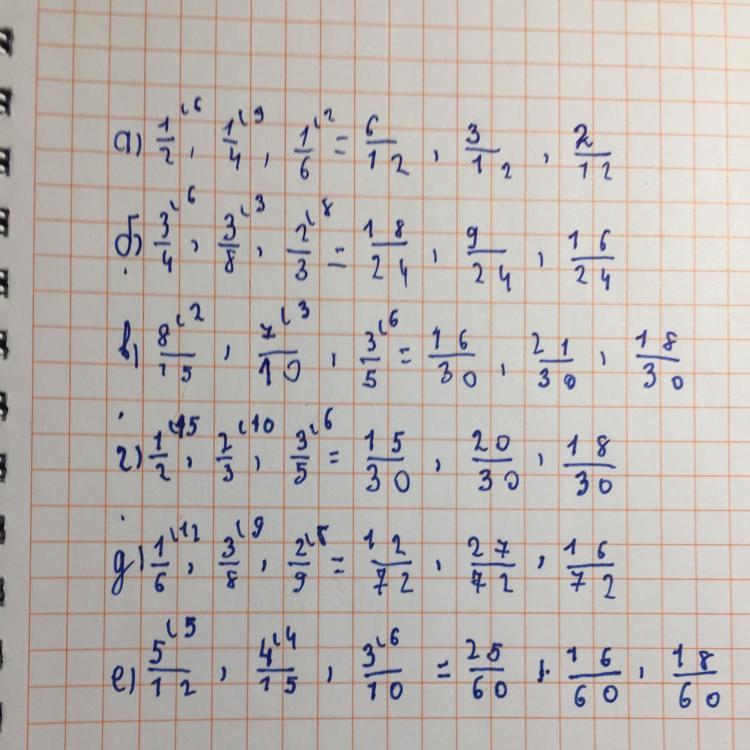 а) 1/2^(6, 1/4^(3, 1/6^(2 = 6/12, 3/12, 2/12
б) 3/4^(6, 3/8^(3, 2/3^(8 = 18/24, 9/24, 16/24
в) 8/15^(2, 7/10^(3, 3/5^(6 = 16/30, 21/30, 18/30
г) 1/2^(15, 2/3^(10, 3/5^(6 = 15/30, 20/30, 18/30
д) 1/6^(12, 3/8^(9, 2/9^(8 = 12/72, 27/72, 16/72
е) 5/12^(5, 4/15^(4, 3/10^(6 = 25/60, 16/60, 18/60